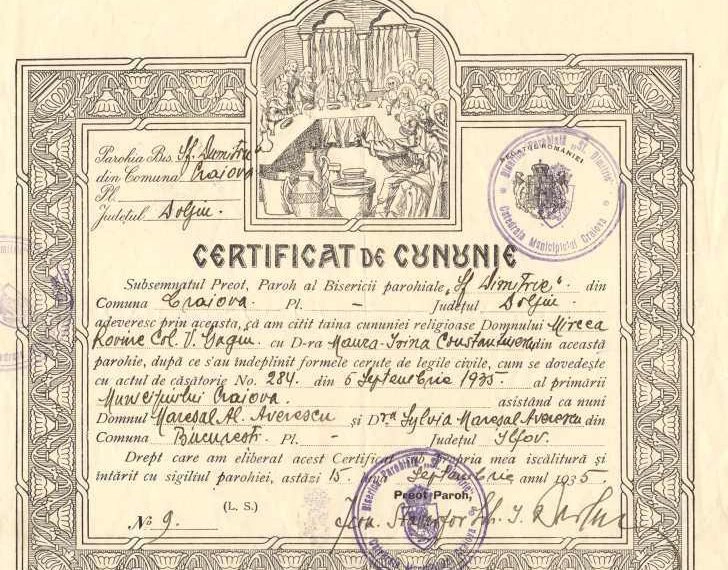 Parohia Bis. „Sf. Dumitru"
din Comuna Craiova
Pl.
Județul Doljiu.
REGATUL ROMÂNIEI
Catedrala Municipiului Craiova
CERTIFICAT DE CUNUNIE
Subsemnatul Preot, Paroh al Bisericii parohiale „Sf Dimitrie". din
Comuna Craiova. Pl. - Județul Doljiu
adeveresc prin aceasta, că am citit taina cununiei religioase Domnului Mircea
Col. V. cu D-ra Maura-Irina din această
parohie, după ce s'au îndeplinit formele cerute de legile civile, cum se dovedește
cu actul de căsătorie No. 284. din 5 Septembrie 1935. al primării
Municipiului Craiova. asistând ca nuni
Domnul Mareșal Al. Averescu și D-na Sylvia Mareșal Averescu din
Comuna București. Pl. - Județul Ilfov.
Drept care am eliberat acest Certificat sub propria mea iscălitură și
întărit cu sigiliul parohiei, astăzi 15. Septembrie anul 1935.
(L. S.)
Preot Paroh,
No 9.